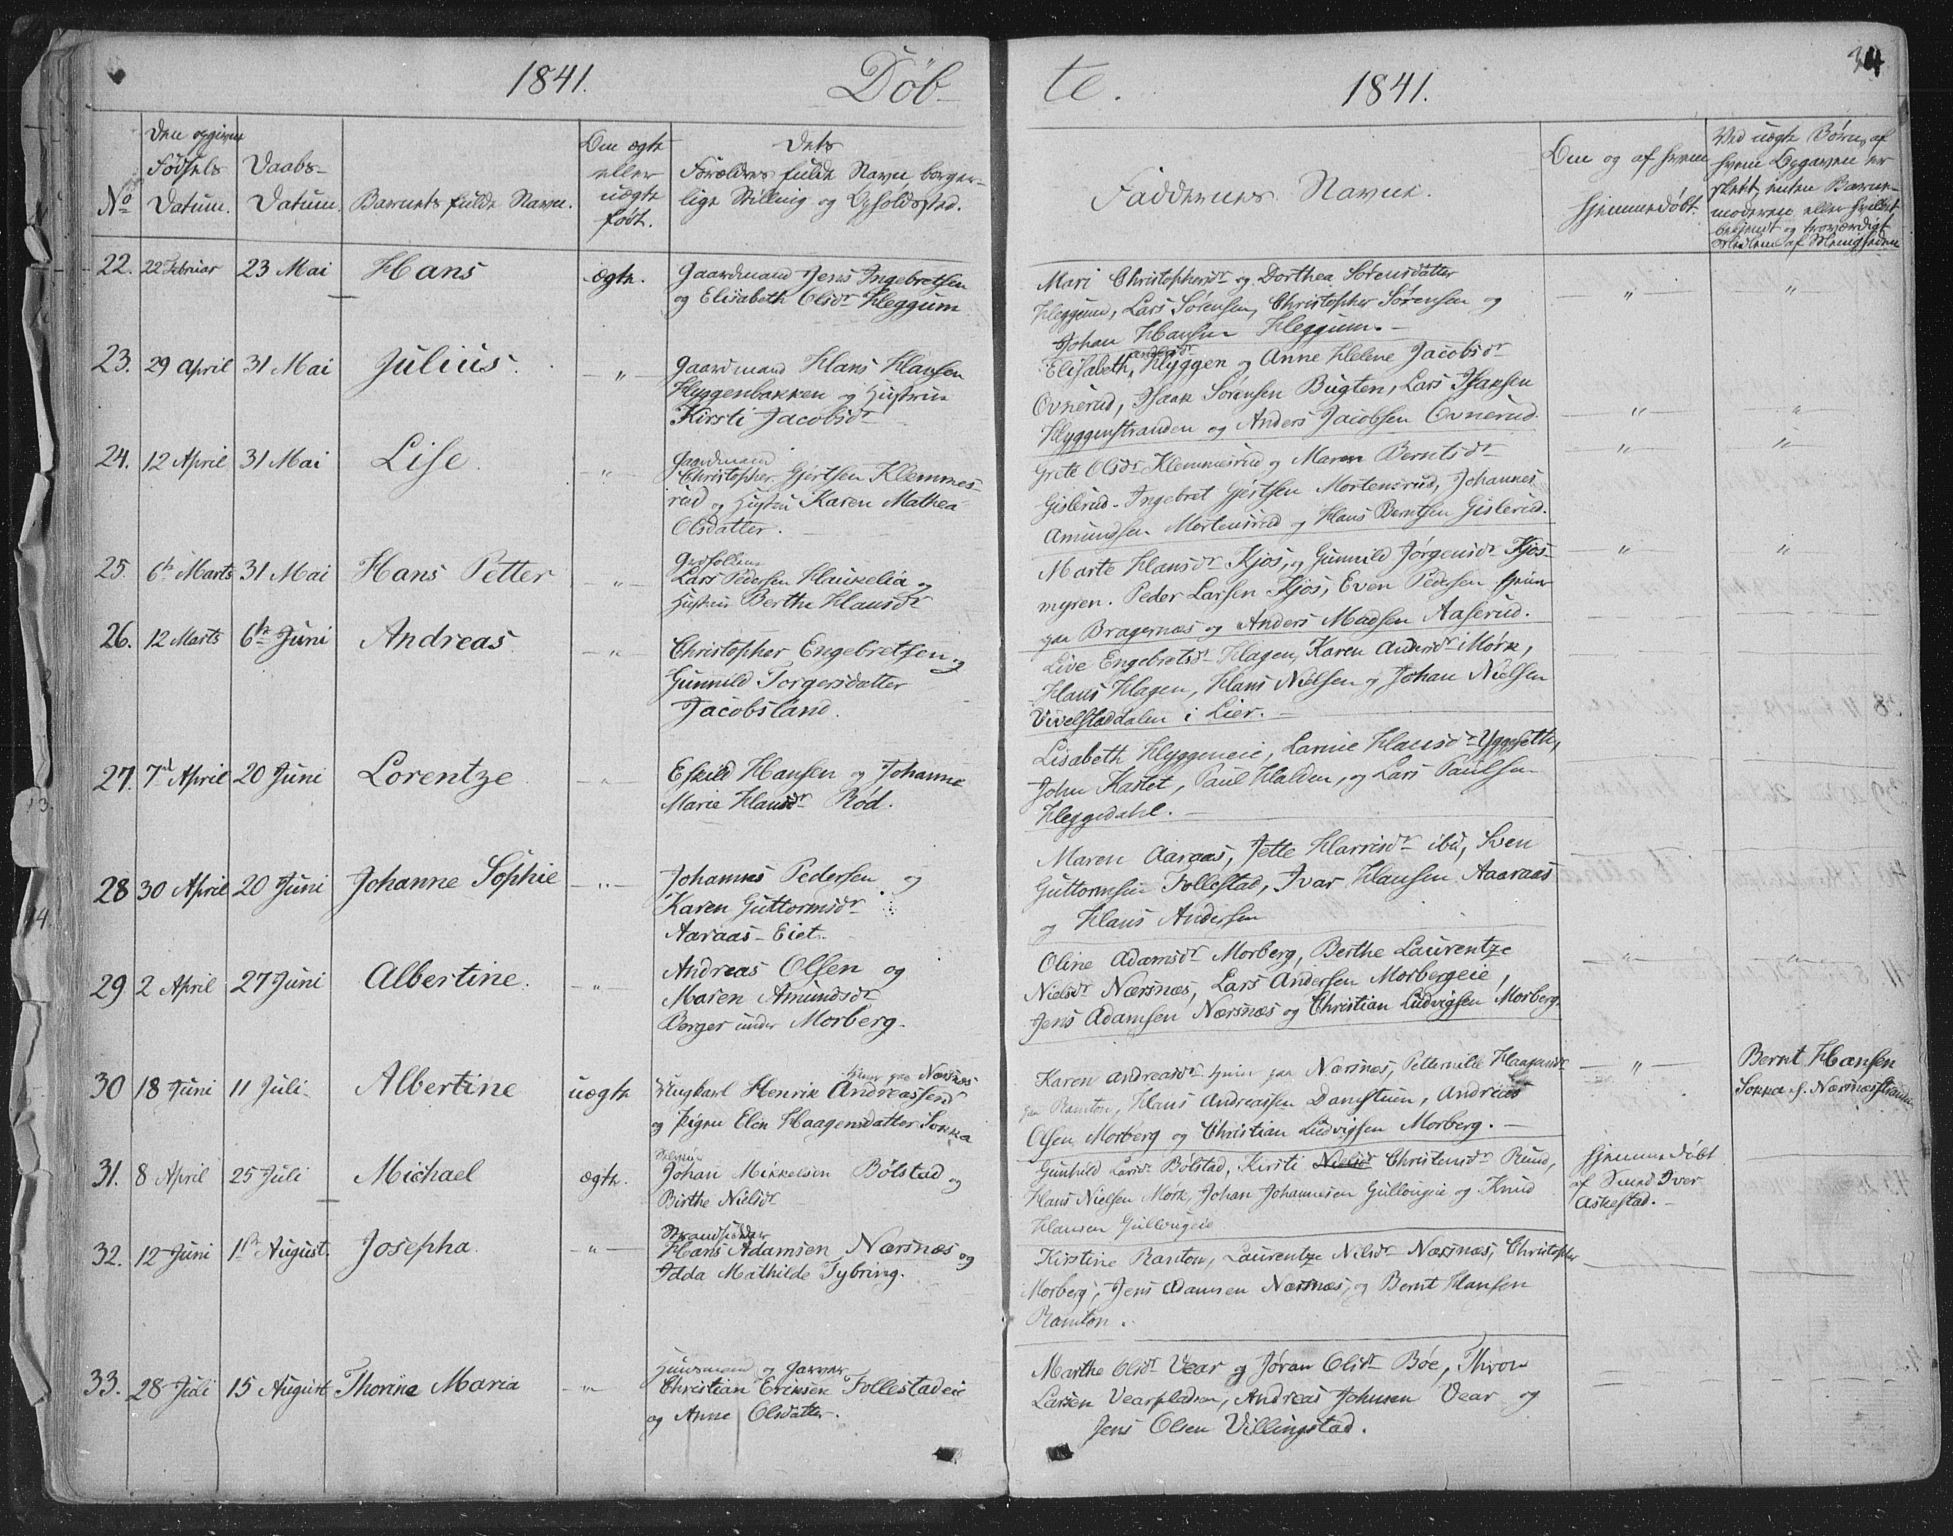 1841.
Døb-
No
Den opgivne
Fødsels
Datum.
Daabs-
Datum.
Barnets fulde Navn.
Den ægte
eller
uægte
født.
Dets
Forældres fulde Navn borger-
lige Stilling og Opholdssted.
22. 22 Februar 23 Mai Hans ægte. Gaardmand Jens Ingebretsen
og Elisabeth Olsdr Heggum
23. 29 April 31 Mai Julius. — " — Gaardmand Hans Hansen
Hyggenbakken og Hustrue
Kirsti Jacobsdr
24. 12 April 31 Mai Lise. — " — Gaardmand
Christopher Gjertsen Klemmes-
rud og Hustru Karen Mathea
Olsdatter.
25. 6te Marts 31 Mai Hans Petter — " —
Lars Pedersen Haukelia og
Hustru Berthe Hansdr
26. 12 Marts 6te Juni Andreas — " — Christopher Engebretsen og
Gunnild Torgersdatter
Jacobsland.
27. 7de April 20 Juni Lorentze " Eskild Hansen og Johanne
Marie Hansdr Rød.
28 30 April 20 Juni Johanne Sophie — " — Johannes Pedersen og
Karen Guttormsdr
Aaraas-Eiet.
29 2 April 27 Juni Albertine. — " — Andreas Olsen og
Maren Amundsdr
Berger under Morberg.
30 18 Juni 11 Juli Albertine uægte Ungkarl Henrik Andreassen
hjem paa Nærsnes
og Pigen Elen Haagensdatter Sokka
31. 8 April 25 Juli Michael ægte.
Johan Mikkelsen Bølstad og
Birthe Nielsdr
32. 12 Juni 1ste August. Josepha. — " — Strandsidder
Hans Adamsen Nærsnæs og
Idda Mathilde Tybring.
33. 28 Juli 15 August Thorine Maria — " — Huusmand og Garver
Christian Eriksen Follestadeie
og Anne Olsdatter.
te. 1841. 34
Faddernes Navne.
Om og af hvem
hjemmedøbt.
Ved uægte Børn, af
hvem Opgaven er
skett, enten Barne-
moderen eller hvilket
bekjendt og troværdigt
Medlem af Menigheden
Mari Christophersdr og Dorthea Sørensdatter
Heggum, Lars Sørensen, Christopher Sørensen og
Johan Hansen Heggum. —
Elisabeth Andersdr Hyggen og Anne Helene Jacobsdr
Ovnerud, Isaak Sørensen Bugten, Lars Hansen
Hyggenstranden og Anders Jacobsen Ovnerud.
Grete Olsdr Klemmesrud og Maren Berntsdr
Gislerud. Ingebret Gjertsen Mortensrud, Johannes
Amundsen Mortensrud og Hans Berntsen Gislerud.
Marte Hansdr Kjos, og Gunnild Jørgensdr Kjos-
myren. Peder Larsen Kjos, Even Pedersen hjem
paa Bragernæs og Anders Madsen Aaserud.
Live Engebretsdr Hagen, Karen Andersdr Mørk,
Hans Hagen, Hans Nielsen og Johan Nielsen
Vivelstaddalen i Lier. —
Lisabeth Hyggeneie, Larine Hansdr Yggeseth,
John Kastet, Paul Halden, og Lars Paulsen
Heggedahl. —
Maren Aaraas, Jette Harrisdr ibd, Sven
Guttormsen Follestad, Ivar Hansen Aaraas
og Hans Andersen
Oline Adamsdr Morberg, Berthe Laurentze
Nielsdr Nærsnæs, Lars Andersen Morbergeie,
Jens Adamsen Nærsnæs og Christian Ludvigsen Morberg
Karen Andreasdr hjem paa Nærsnes, Petternille Haagensdr
paa Ramton, Hans Andreassen Damstuen, Andreas
Olsen Morberg og Christian Ludvigsen Morberg. —
Bernt Hansen
Sokka p. Nærsnæsstranden
Gunhild Larsdr Bølstad, Kirsti Nielsdr Christensdr Rund,
Hans Nielsen Mørk, Johan Johannesen Gullougeie og Knud
Hansen Gullougeie
hjemmedøbt
af Smed Iver
Askestad. —
Kirstine Ramton, Laurentze Nilsdr Nærsnæs, Christopher
Morberg, Jens Adamsen Nærsnæs, og Bernt Hansen
Ramton.
Marthe Olsdr Vear og Jøran Olsdr Bøe, Thron
Larsen Vearpladsen, Andreas Johnsen Vear og
Jens Olsen Villingstad.